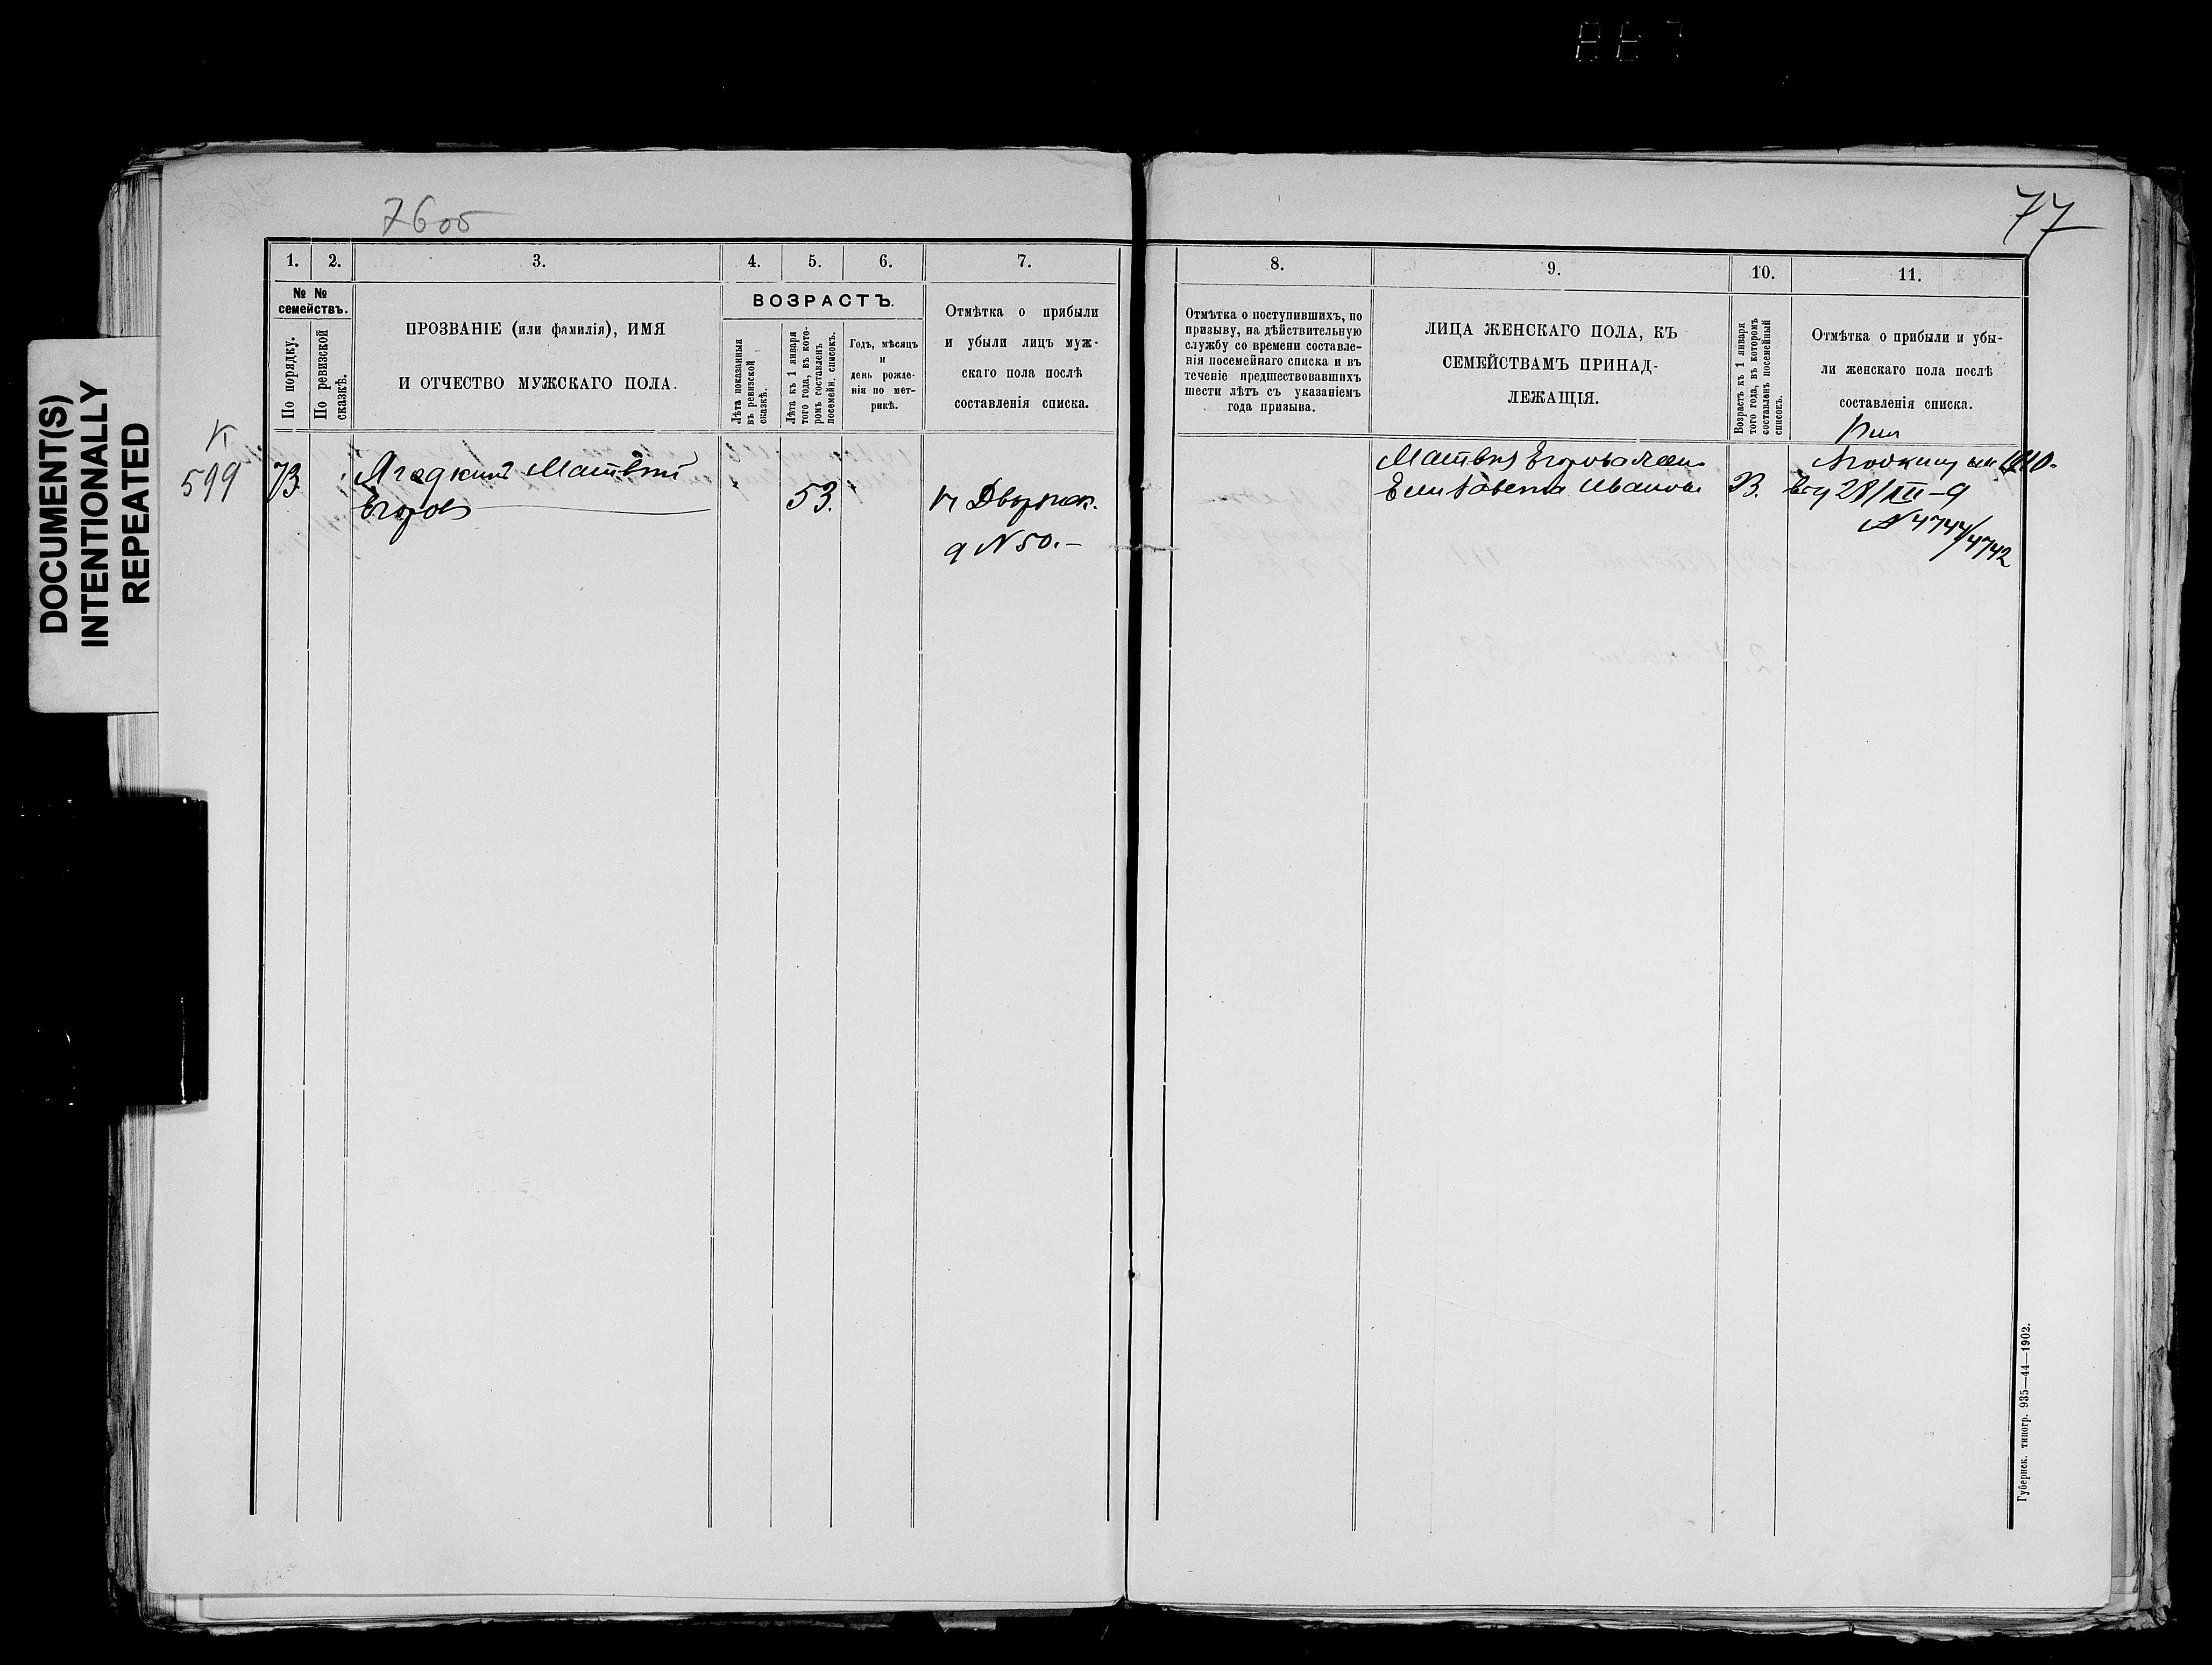 DOCUMENT(S)
INTENTIONALLY
REPEATED
76об
77
1.
2.
3.
4.
5.
6.
7.
8.
9.
10.
11.
№ №
семействъ.
По порядку.
По ревизской
сказкѣ.
ПРОЗВАНІЕ (или фамилія), ИМЯ
И ОТЧЕСТВО МУЖСКАГО ПОЛА.
ВОЗРАСТЪ.
Лѣта показанныя
въ ревизской
сказкѣ.
Лѣта къ 1 января
того года, въ кото-
ромъ составленъ
посемейн. списокъ.
Годъ, мѣсяцъ
и
день рожде-
нія по мет-
рикѣ.
Отмѣтка о прибыли
и убыли лицъ муж-
скаго пола послѣ
составленія списка.
Отмѣтка о поступившихъ, по
призыву, на дѣйствительную
службу со времени составле-
нія посемейнаго списка и въ
теченіе предшествовавшихъ
шести лѣтъ съ указаніемъ
года призыва.
ЛИЦА ЖЕНСКАГО ПОЛА, КЪ
СЕМЕЙСТВАМЪ ПРИНАД-
ЛЕЖАЩІЯ.
Возрастъ къ 1 января
того года, въ которомъ
составленъ посемейный
списокъ.
Отмѣтка о прибыли и убы-
ли женскаго пола послѣ
составленія списка.
599
73
Ягодкинъ Матвѣй
Егоровъ
53.
№ 50.—
Матвѣя Егорова жена
Елизавета Иванова
В.
1910.
28/XII—9
№ 4744/4742
Губернск. типогр. 935—44—1902.